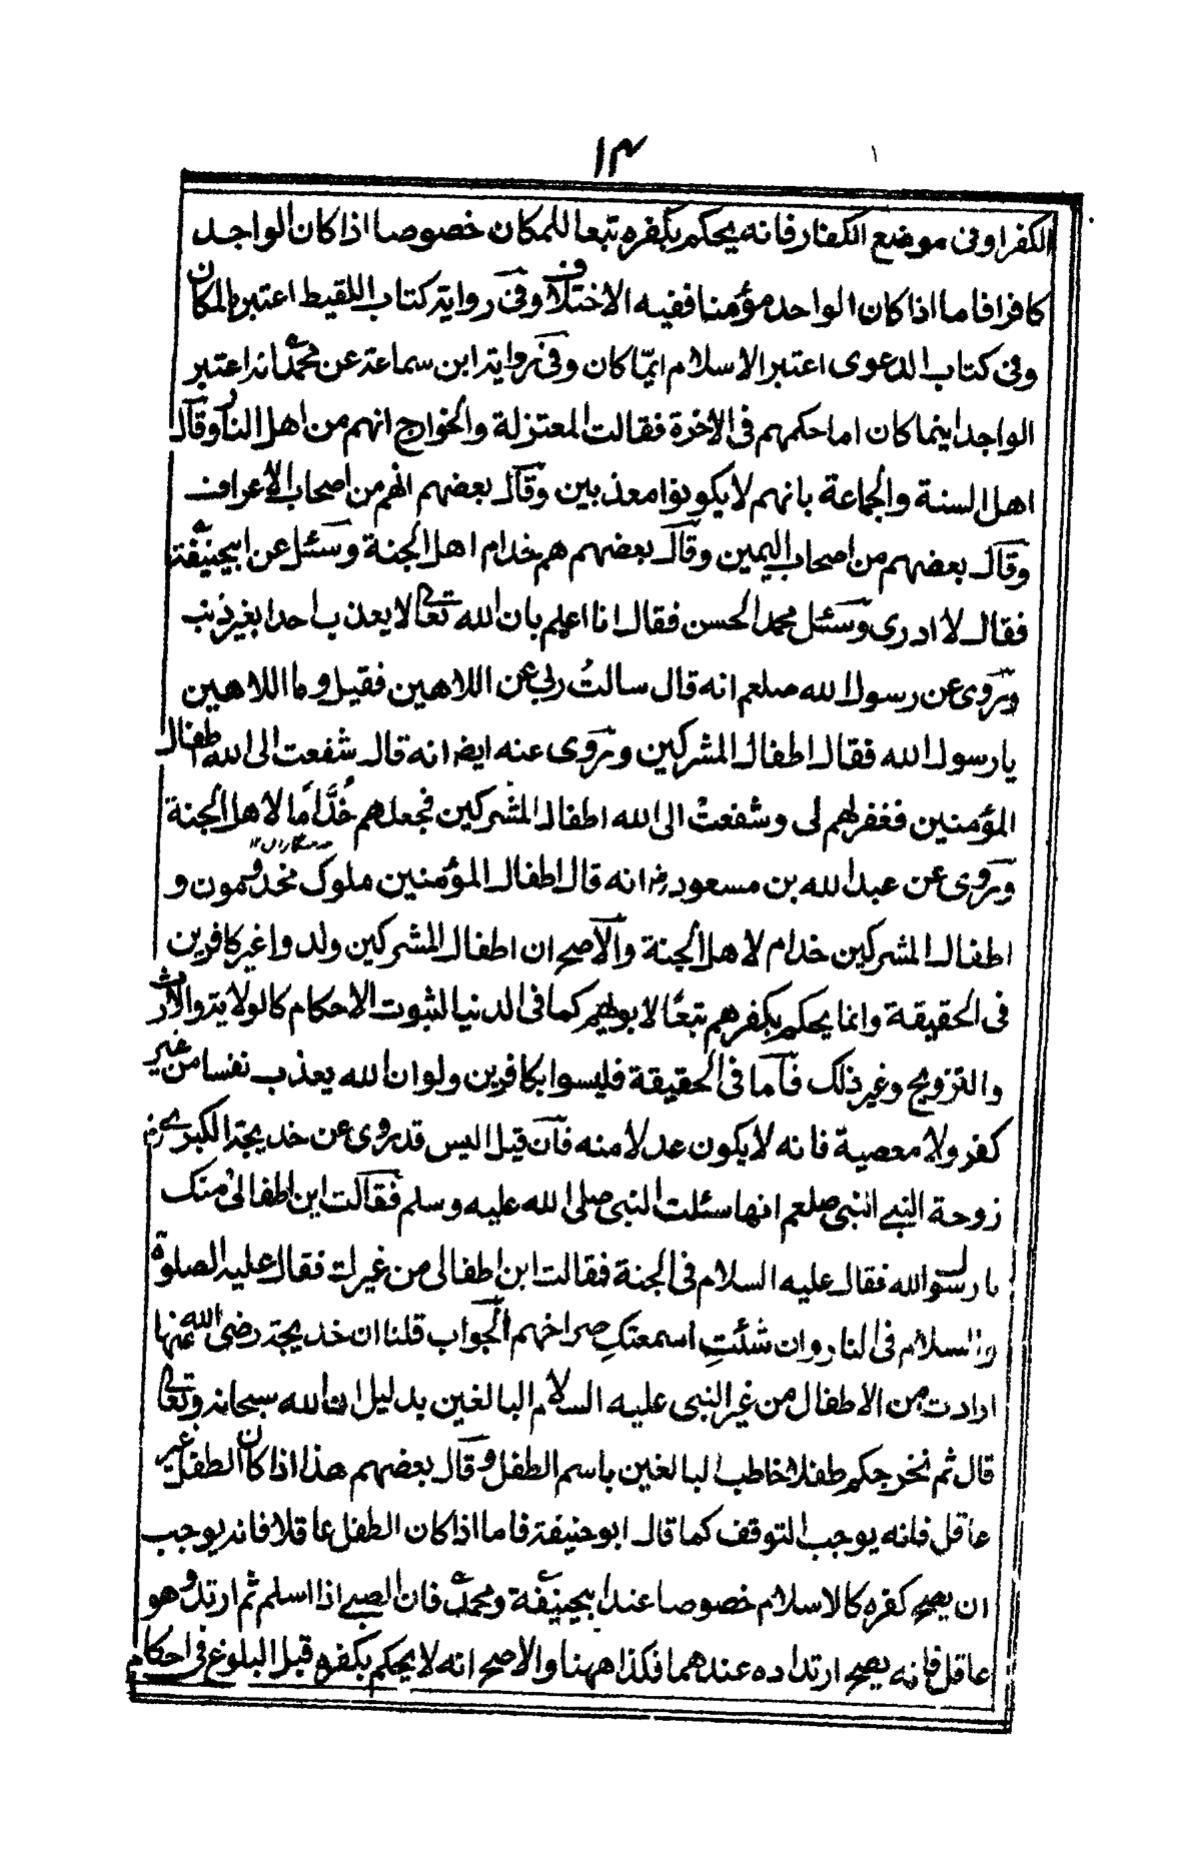 ١٣
الكفر او فى موضع الكفار فانه يحكم بكفره تبعا للمكان خصوصا اذا كان الواجد
كافرا فاما اذا كان الواجد مؤمنا ففيه الاختلاف وفى رواية كتاب اللقيط اعتبر المكان
وفى كتاب الدعوى اعتبر الاسلام ايّما كان وفى رواية ابن سماعة عن محمدؒ انه اعتبر
الواجد اينما كان اما حكمهم فى الآخرة فقالت المعتزلة والخوارج انهم من اهل النار وقال
اهل السنة والجماعة بانهم لا يكونوا معذبين وقال بعضهم انهم من اصحاب الاعراف
وقال بعضهم من اصحاب اليمين وقال بعضهم هم خدام اهل الجنة وسئل عن ابيحنيفةؒ
فقال لا ادرى وسئل محمد الحسن فقال انا اعلم بان الله تعالى لا يعذب احدا بغير ذنب
وروى عن رسول الله صلعم انه قال سالتُ ربى عن اللاهين فقيل وما اللاهين
يا رسول الله فقال اطفال المشركين وروى عنه ايضا انه قال شفعت الى الله اطفال
المؤمنين فغفر لهم لى وشفعتُ الى الله اطفال المشركين فجعلهم خُدَّامًا لاهل الجنة
وروى عن عبد الله بن مسعود رض انه قال اطفال المؤمنين ملوك مخدومون و
اطفال المشركين خدام لاهل الجنة والآصح ان اطفال المشركين ولدوا غير كافرين
فى الحقيقة وانما يحكم بكفرهم تبعًا لابويهم كما فى الدنيا لثبوت الاحكام كالولاية والارث
والتزويج وغير ذلك فآما فى الحقيقة فليسوا بكافرين ولو ان الله يعذب نفسا من غير
كفر ولا معصية فانه لا يكون عدلا منه فآن قيل اليس قد روى عن خديجة الكبرى رض
زوجة النبى صلعم انها سئلت النبى صلى الله عليه وسلم فقالت اين اطفالى منك
يا رسول الله فقال عليه السلام فى الجنة فقالت اين اطفالى من غيرك فقال عليه الصلوة
والسلام فى النار وان شئتِ اسمعتكِ صراخهم الجواب قلنا ان خديجة رضى الله عنها
ارادت من الاطفال من غير النبى عليه السلام البالغين بدليل ان الله سبحانه وتعالى
قال ثم نخرجكم طفلا خاطب البالغين باسم الطفل وقال بعضهم هذا اذا كان الطفل غير
عاقل فانه يوجب التوقف كما قال ابو حنيفة فاما اذا كان الطفل عاقلا فانه يوجب
ان يصح كفره كالاسلام خصوصا عند ابيحنيفةؒ ومحمدؒ فان الصبى اذا اسلم ثم ارتد وهو
عاقل فانه يصح ارتداده عندهما فكذا ههنا والاصح انه لا يحكم بكفره قبل البلوغ فى احكام